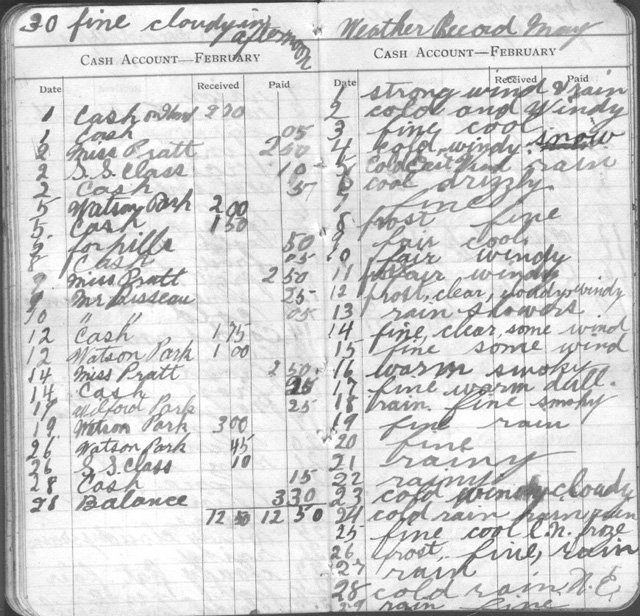 30 fine cloudy in
afternoon
CASH ACCOUNT—FEBRUARY
Date Received Paid
1 Cash on Hand 2 70
1 Cash 05
2 Miss Pratt 2 50
2 S. S. Class 10
2 Cash
5 Watson Park 2 00
5 Cash 1 50
for pills 50
8 Cash 05
9 Miss Pratt 2 50
9 Mr 25
10 " " 05
12 Cash 1 75
12 Watson Park 1 00
14 Miss Pratt 2 50
14 Cash
Wilford Park 25
19 Watson Park 3 00
26 Watson Park 45
26 S. S. Class 10
28 Cash 15
28 Balance 3 30
12 50 12 50
Weather Record May
CASH ACCOUNT—FEBRUARY
Date Received Paid
1 strong wind & rain
2 cold and windy
3 fine cool
4 cold, windy. snow
5 Cold East Wind rain
6 cool drizzly
7 fine
8 frost fine
9 fair cool
10 fair windy
11 fair windy
12 frost, clear, windy
13 rain showers
14 fine, clear, some wind
15 fine some wind
16 warm smoky
17 fine warm dull.
18 rain. fine smoky
19 fine rain
20 fine
21 rainy
22 rainy
23 cold windy cloudy
24 cold rain rain
25 fine cool
26 frost, fine, rain
27 rain
28 cold rain N. E.
29 rain fine